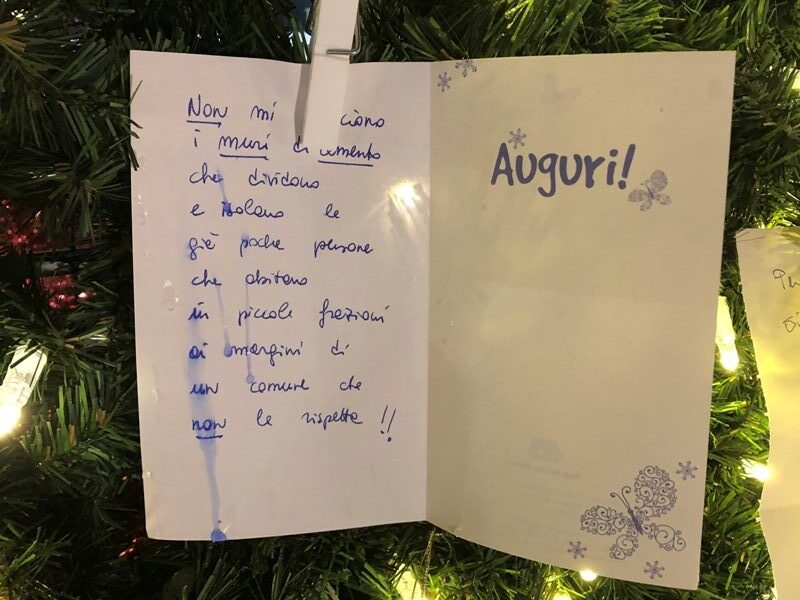 Non mi ciono
i muri di cemento
che dividono
e isolano le
già poche persone
che abitano
in piccole frazioni
ai margini di
un comune che
non le rispetta !!
Auguri!